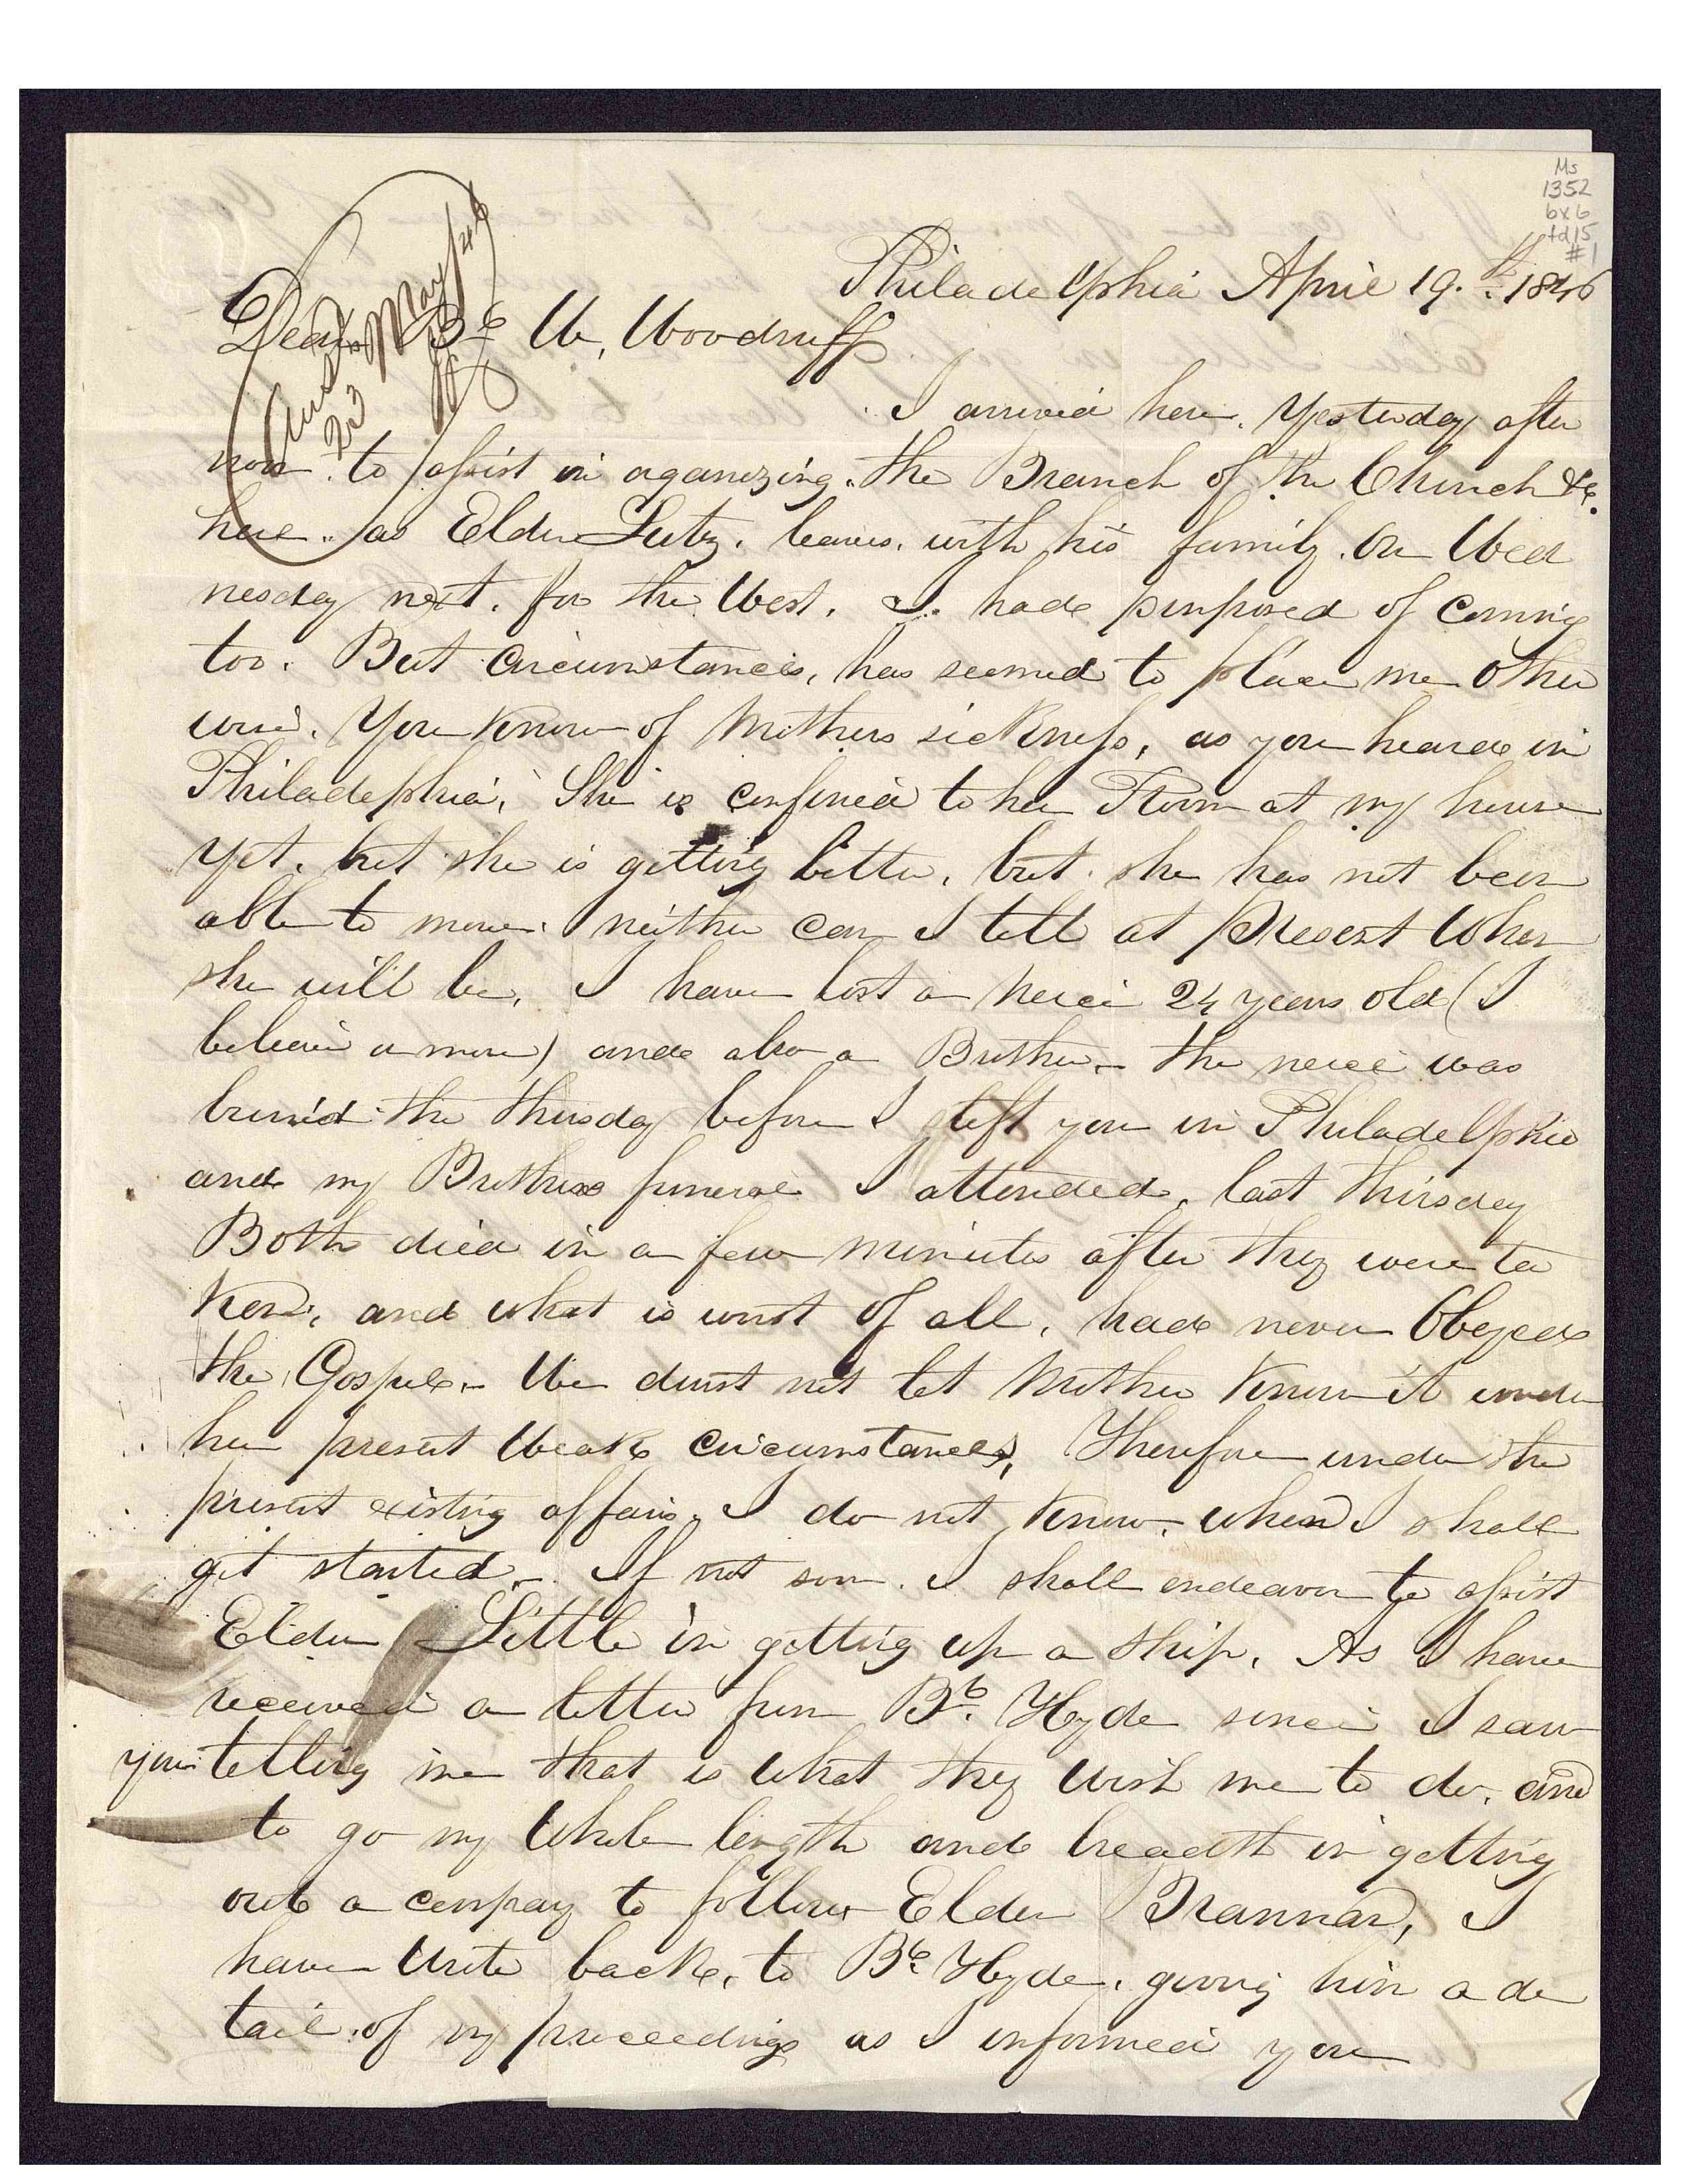 Ms
1352
bx 6
fd 15
#1
Philadelphia April 19.th 1846
Ans
23 May/46
Dear Br W, Woodruff
I arrived here. Yesterday after
noon to assist in oganizing. the Branch of the Church &c.
here.. as Elder Lutz. leaves. with his family. On Wed
nesday next. for the West. I. had purposed of coming
too. But Circumstances, has seemed to place me other
wise. You know of Mothers sickness, as you heard in
Philadelphia, She is confined to her Room at my house
yet. but she is getting better, but she has not been
able to move. neither can I tell at Present When
she will be, I have lost a neice 24 years old (I
believe a more) and also a Brother,- the neice was
buried the thirsday before I left you in Philadelphia
and my Brothers funeral I attended, last thirsday
Both died in a few minutes after they were ta
ken, and what is worst of all, had never Obeyed
the Gospel.- We durst not let Mother know it under
her present Weak circumstances, Therefore under the
present existing affairs, I do not know. when I shall
get started.- If not soon. I shall endeavor to assist
Elder Little in getting up a ship, As I have
received a letter from Br. Hyde since I saw
you telling me that is what they wish me to do, and
to go my whole length and breadth in getting
out a company to follow Elder Brannan, I
have Write back, to Br. Hyde, giving him a de
tail of my proceedings as I informed you